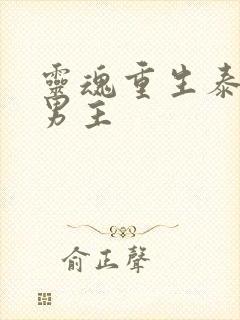 靈魂重生泰
男主
俞正聲